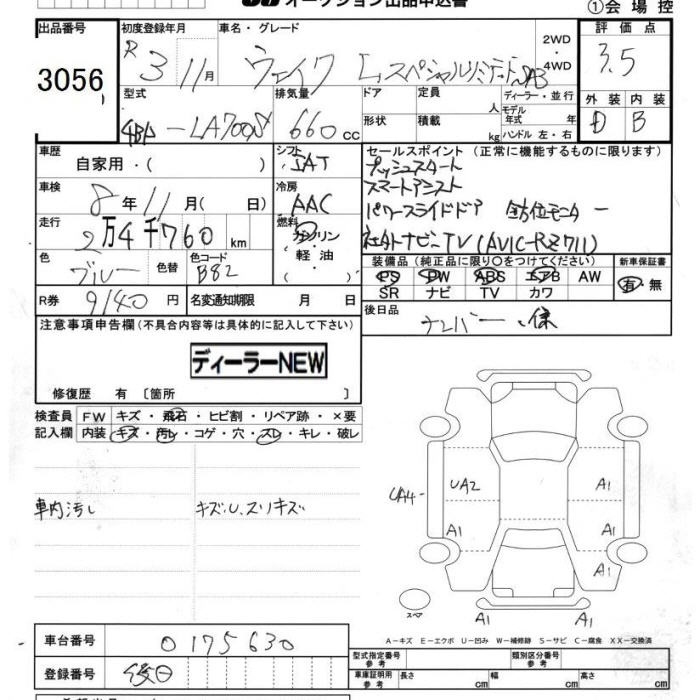 オークション出品申込書
①会場控
出品番号
3056
初度登録年月
R 3 11月
車名・グレード
ウェイク Lスペシャルリミテッド SA3
2WD
・
4WD
評価点
3.5
外装 内装
D B
型式
4BA-LA700S
排気量
660cc
ドア
形状
定員
人
積載
kg
ディーラー・並行
モデル
年式 年
ハンドル 左・右
車歴
自家用・( )
シフト
AT
車検
8年11月( 日)
冷房
AAC
走行
2万4千760km
燃料
ガソリン
(軽油)
色
ブルー
色替
色コード
B82
R券
9140円
名変通知期限 月 日
セールスポイント (正常に機能するものに限ります)
プッシュスタート
スマートアシスト
パワースライドドア 全方位モニター
社外ナビ・TV(AVIC-RZ711)
装備品(純正品に限り○をつけてください)
PS PW ABS エアB AW
SR ナビ TV カワ
新車保証書
有・無
後日品
ナンバー、保
注意事項申告欄(不具合内容等は具体的に記入して下さい)
ディーラーNEW
修復歴 有 〔箇所 〕
検査員
記入欄
FW キズ・飛石・ヒビ割・リペア跡・×要
内装 キズ・汚れ・コゲ・穴・スレ・キレ・破レ
車内汚し
キズ、U、スリキズ
UA4
UA2
A1
A1
A1
A1
A1
A1
A1
スペア
A-キズ E-エクボ U-凹み W-補修跡 S-サビ C-腐食 XX-交換済
車台番号
0175630
登録番号
後日
型式指定番号
参考
類別区分番号
参考
車庫証明用
参考
長さ cm
幅 cm
高さ cm